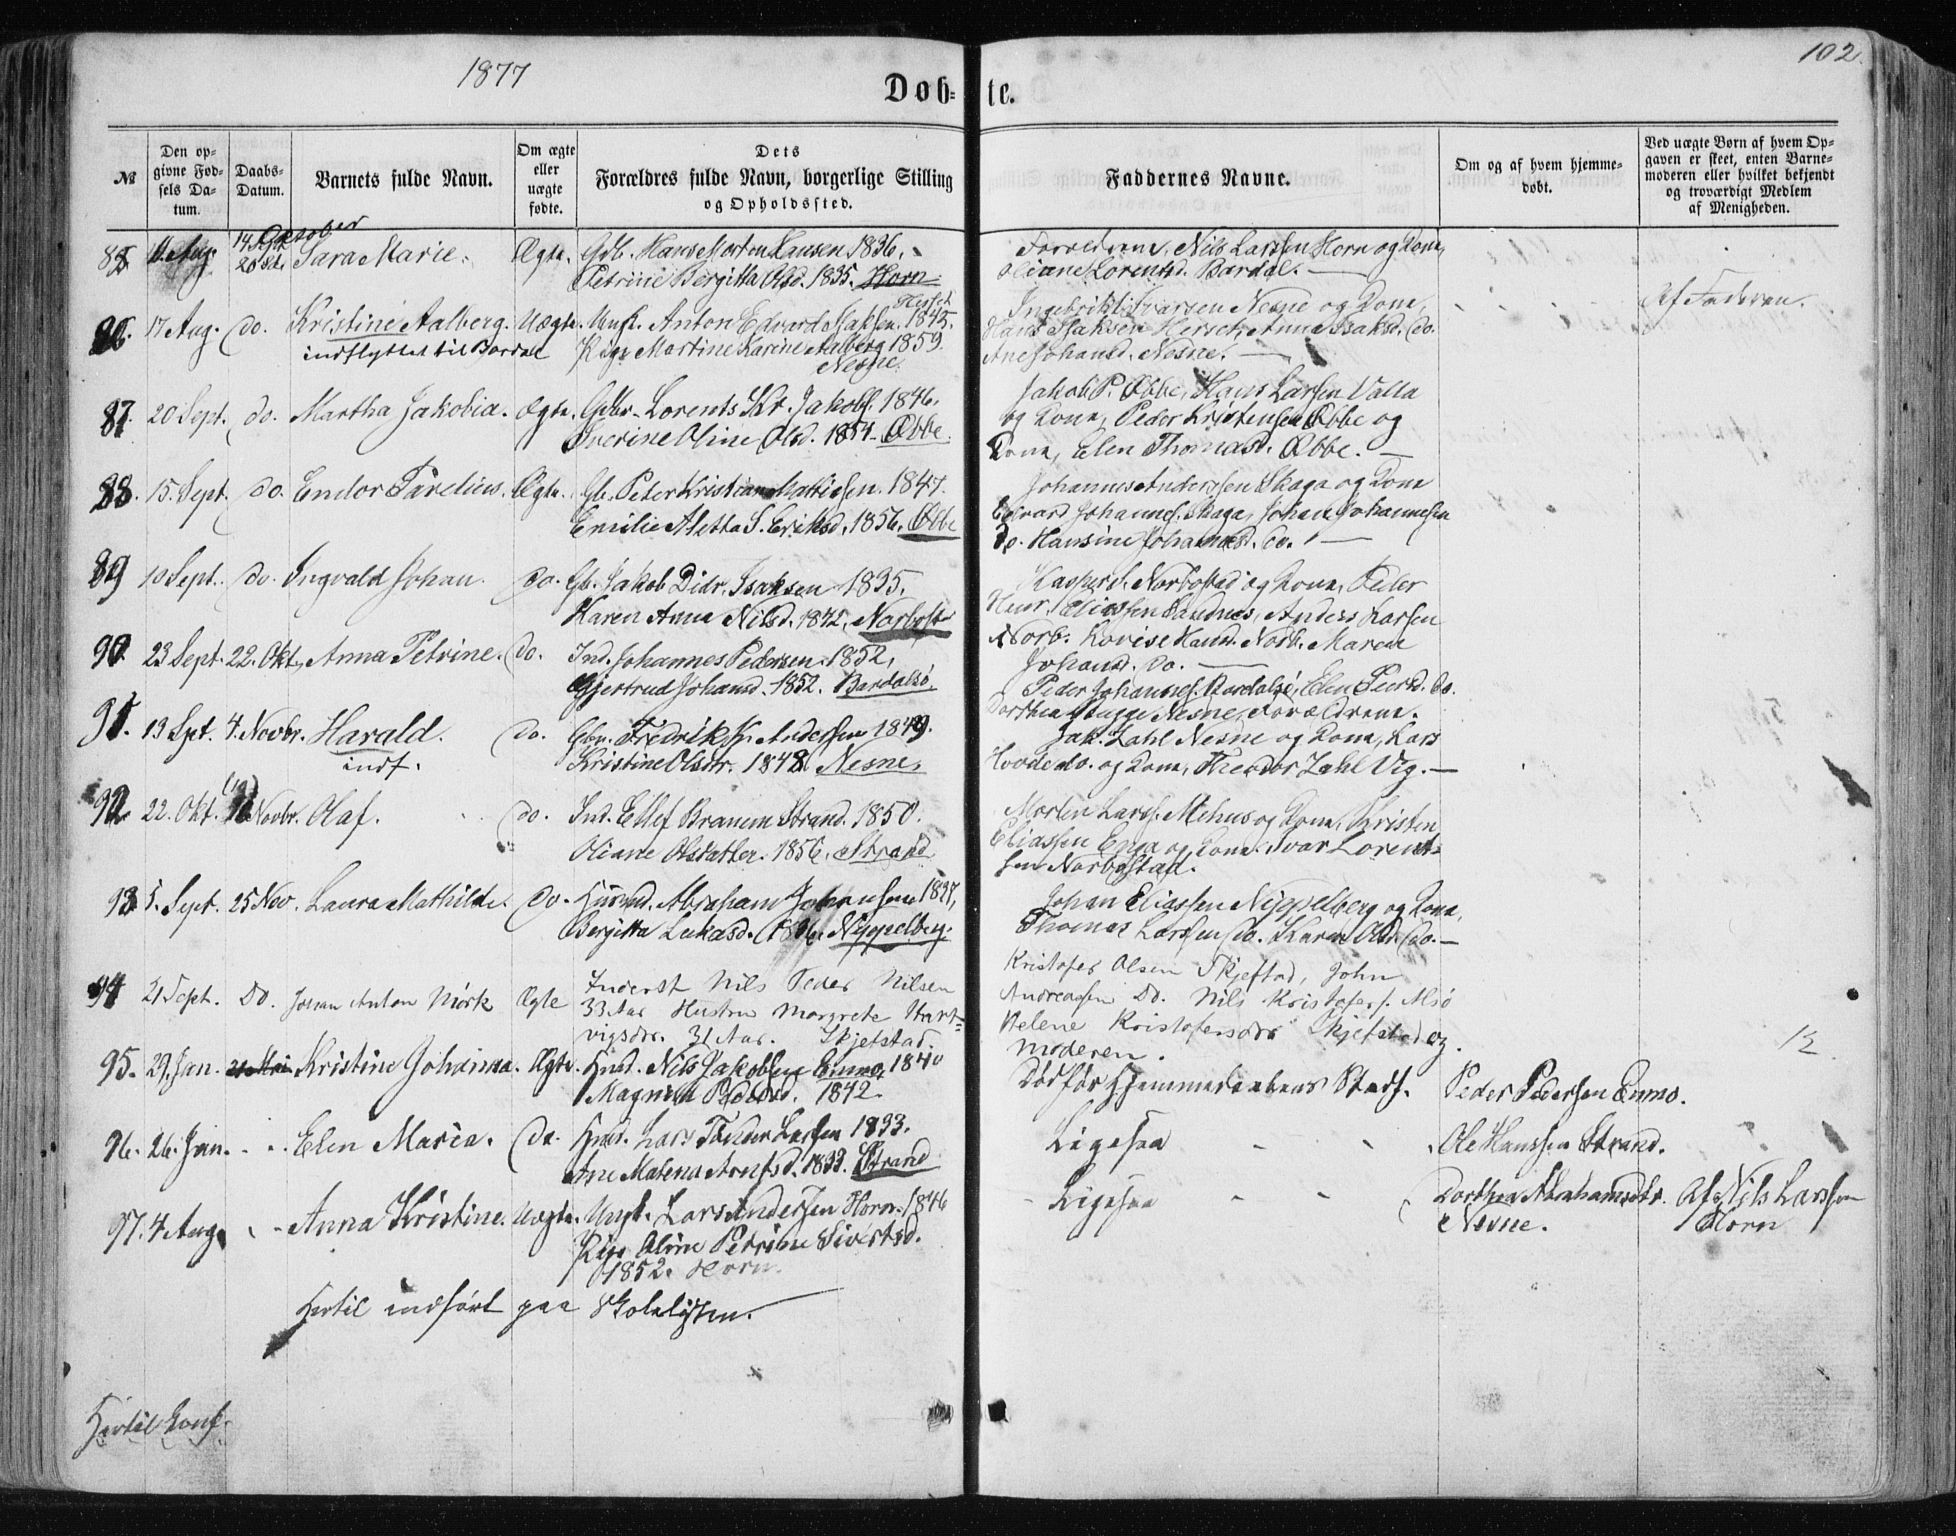 1877
102.
Døb-
te.
№
Den op-
givne Fød-
sels Da-
tum.
Daabs-
Datum.
Barnets fulde Navn.
Om ægte
eller
uægte
fødte.
Dets
Forældres fulde Navn, borgerlige Stilling
og Opholdssted.
Faddernes Navne.
Om og af hvem hjemme-
døbt.
Ved uægte Børn af hvem Op-
gaven er skeet, enten Barne-
moderen eller hvilket bekjendt
og troværdigt Medlem
af Menigheden.
85. Aug. 14 Oktober Sara Marie. Ægte. Gdb. Hans Morten Hansen 1836.
Petrine Bergitta Olsd. 1835. Horn
Forældrene, Nils Larssen Horn og Kone,
Oliane Lorentsd. Bardal.
86. 17 Aug. do. Kristine Aalberg. Uægte. Unk. Anton Edvard Isaksen 1845.
indflyttet til Bardal
Pige Martine Karine Aalberg 1859.
Nesne.
Ingebrikt Ivarsen Nesne og Kone,
Hans Isaksen Anna Isaksd. do.
Ane Johansd. Nesne.
Af Faderen.
87. 20 Sept. do. Martha Jakobia. Ægte. Gdbr. Lorents Kr. Jakobs. 1846.
Iverine Oline Olsd. 1854. Æbbe.
Jakob P. Æbbe, Hans Larsen Valla
og Kone, Peder Kristensen Æbbe og
Kone, Elen Thomasd. Æbbe.
88. 15. Sept. do. Endor Parelius. Ægte. Gb. Peter Kristian Mattissen. 1847.
Emilie Aletta S. Eriksd. 1856. Æbbe
Johannes Anderssen Skaga og Kone
Edvard Johannes. Skaga, Johan Johannessen
do. Hansine Johannesd. do.
89 10 Sept. do. Ingvald Johan. do. Gb. Jakob Didr. Isaksen 1835.
Karen Anna Nilsd. 1842, Norbost
Norbostad og Kone, Peder
Henr. Eliassen Sandnes, Anders Larsen
Norb. Lovise Hansd. Norb. Maren
Johansd. do.
90. 23 Sept. 22. Okt. Anna Petrine. do. Ind. Johannes Pedersen. 1852,
Gjertrud Johansd. 1852. Bardalsø.
Peder Johannes. Bardalsø, Elen Peersd. do.
Dorthea Bugge Nesne, Forældrene.
91. 13 Spt. 4. Novbr. Harald. do. Gbr. Fredrik K. Andersen 1849.
indf.
Kristine Olsdtr. 1848. Nesne.
Jak. Zahl Nesne og Kone, Lars
Hovde do. og Kone, Theodor Zahl Vig.
92. 22. Okt. Novbr. Olaf. do. Ind. Ellef Branem Strand. 1850.
Oliane Olsdatter. 1856. Strand
Morten Larss. Mehus og Kone, Kristen
Eliassen Enga og Kone. Ivar Lorent-
sen Norbostad.
93. 5. Sept. 25 Nov. Laura Mathilde. do. Husmd. Abraham Johansen 1837,
Bergitta Lukasd. 1836. Nippelberg.
Johan Eliassen Nippelberg og Kone,
Thomas Larssen do. Karen Olsd. do.
94 21 Sept. Do. Johan Anton Mørk Ægte Inderst Nils Peder Nilsen
33 Aar Hustru Margrete Hart-
vigsdr. 31 Aar. Skjefstad.
Kristofer Olsen Skjefstad, John
Andreassen Do. Nils Kristofers. Alsø
Helene Kristofersdr. Skjefstad og
moderen.
95. 29. Jan. Kristine Johanna. Ægte. Husmd. Nils Jakobsen Enmo, 1840
Magnhild Pedersd. 1842.
Død før Hjemmedaabens Stadf. Peder Pedersen Enmo.
96. 26. Jan. Elen Maria. do. Husmd. Lars Tønder Larsen 1833.
Ane Malena Arntsd. 1833. Strand
Ligesaa Ole Hanssen Strand.
97. 4 Aug. Anna Kristine. Uægte. Ungk. Lars Andersen Horn. 1846
Pige Oline Petrine Sivertsd.
1852. Horn.
Ligesaa Dorthea Abrahamsdtr. Af Nils Larssen
Nesne. Horn
Hertil indført paa Skolelisten.
Hertil Konf.